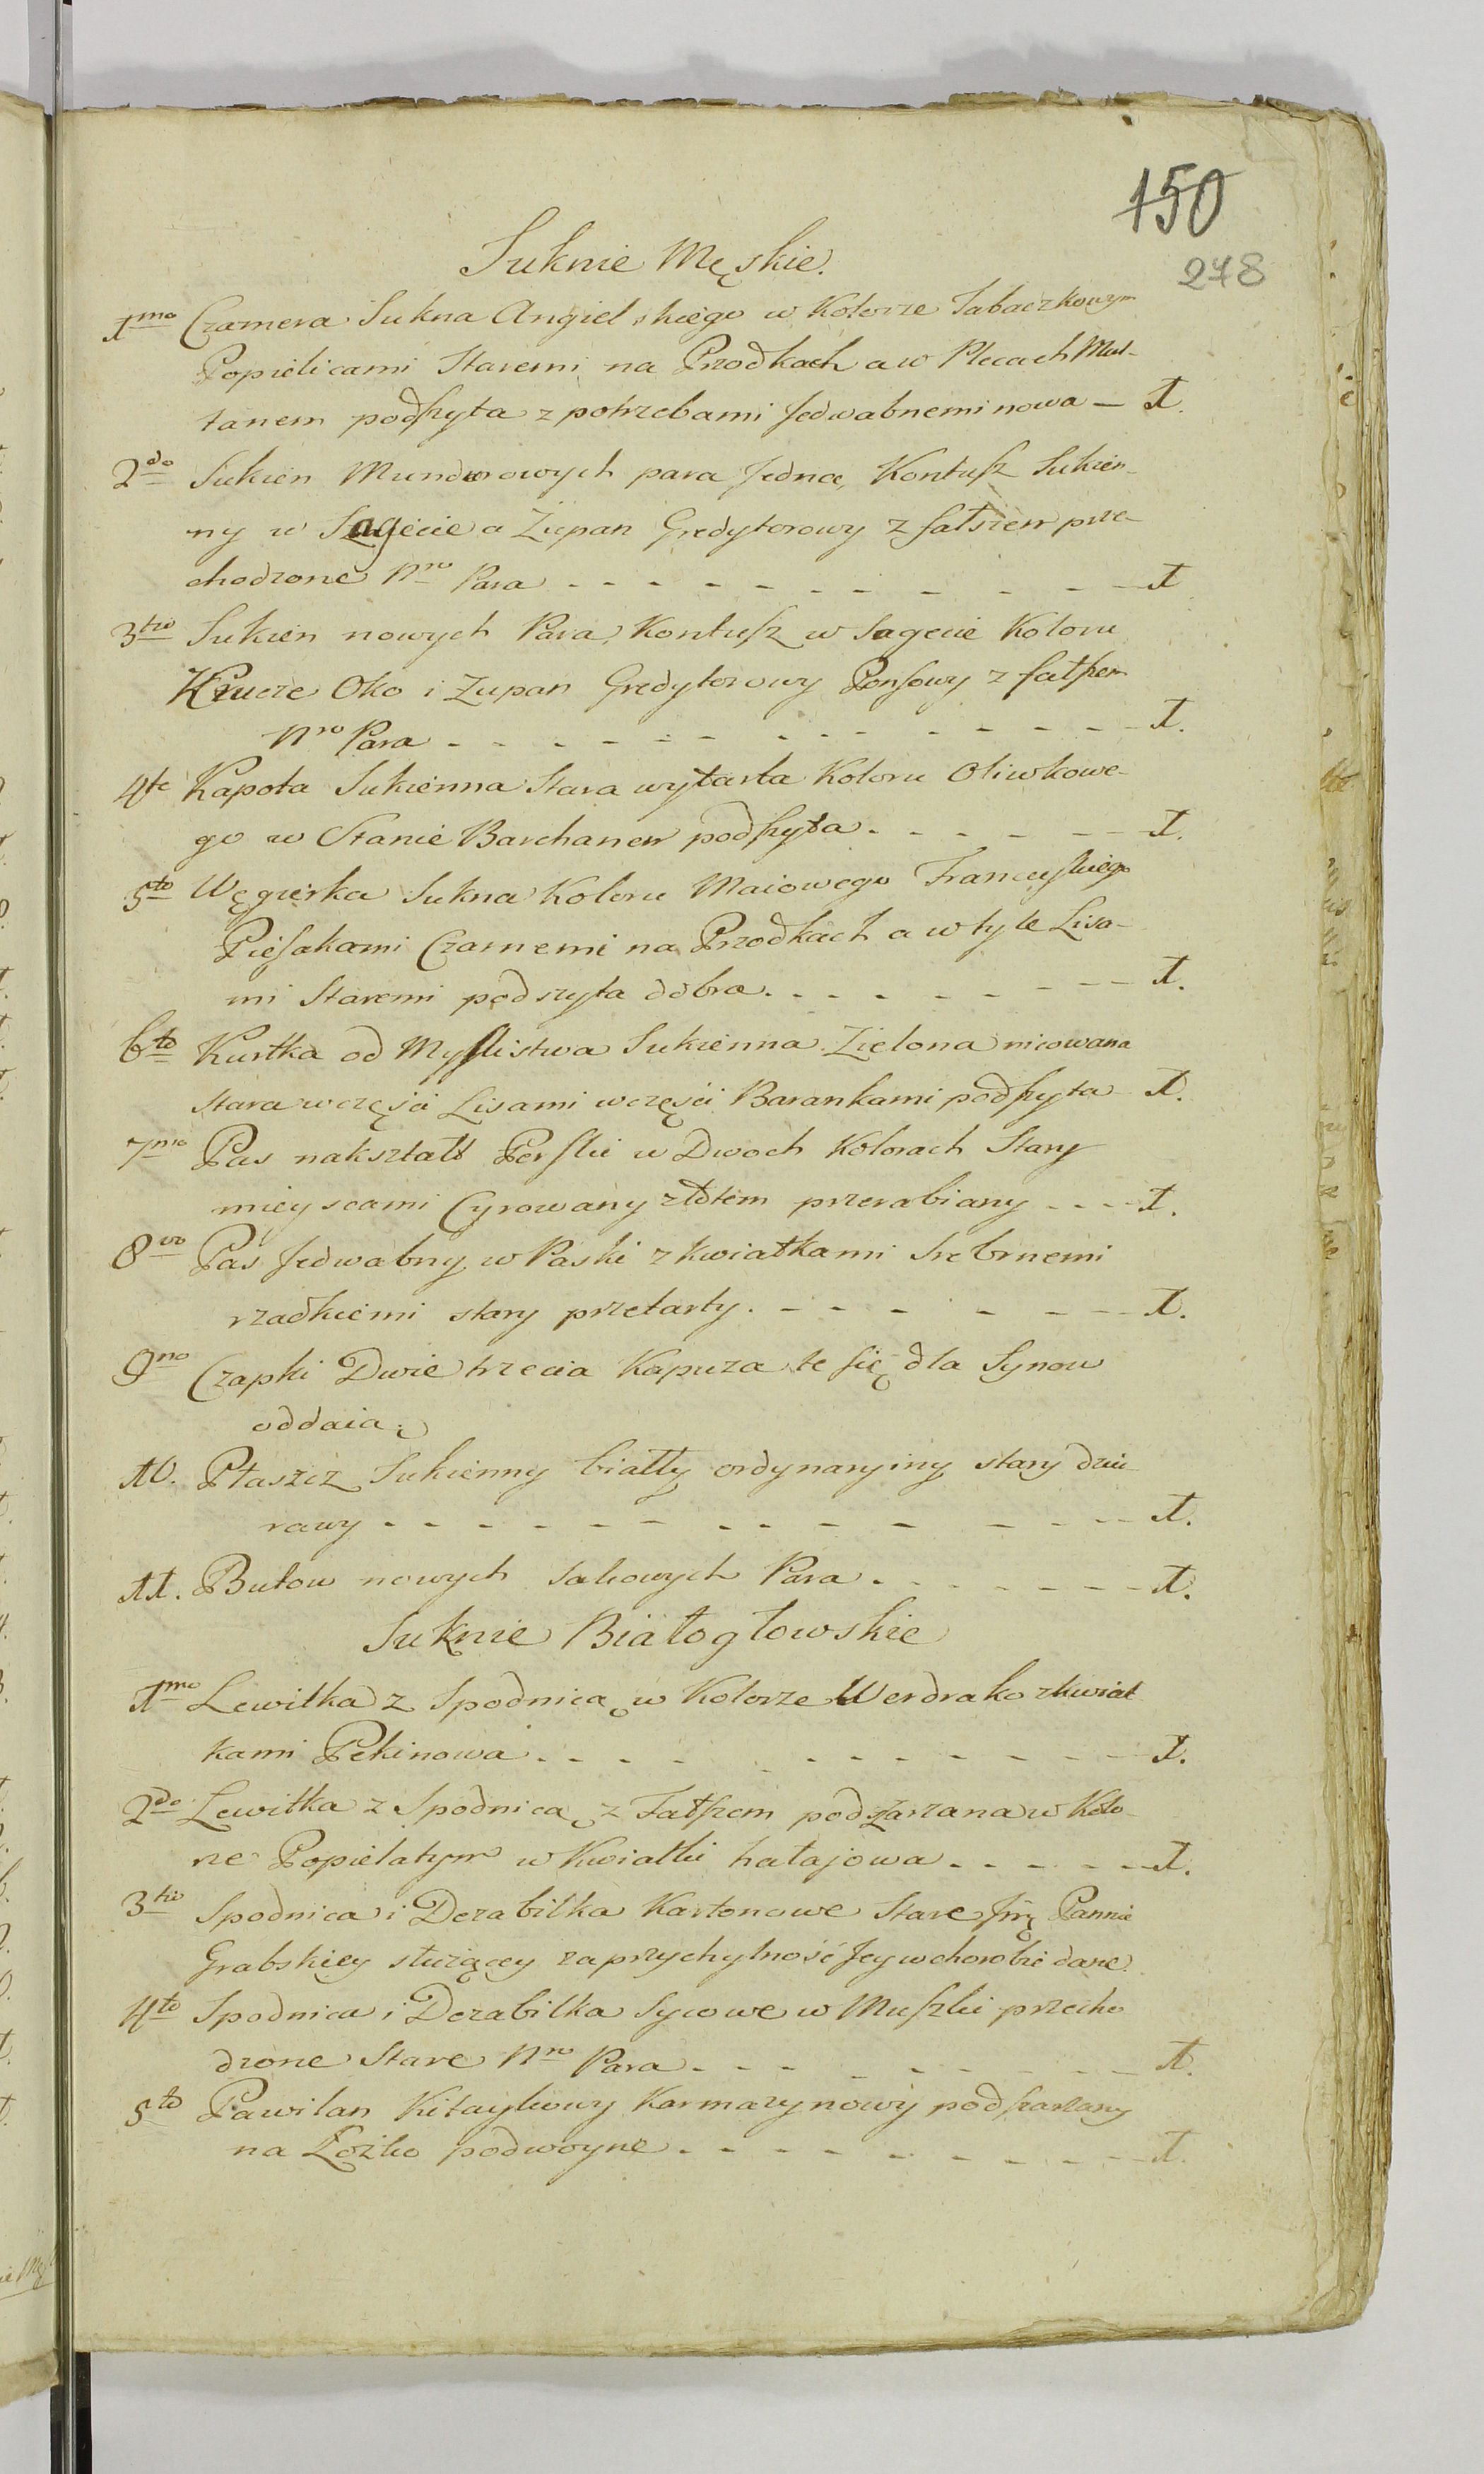 150
278
Suknie Męskie.
1mo Czamera Sukna Angielskiego w Kolorze Tabaczkowym
Popielicami Staremi na Przodkach a w Plecach Mul-
tanem podszyta z potrzebami Jedwabnemi nowa — 1.
2do Sukien Mundurowych para Jedna, Kontusz Sukien-
ny w Sagecie a Żupan Gredytorowy z fałszem prze-
chodzone Nro Para - - - - - - - - - - 1
3tio Sukien nowych Para, Kontusz w Sagecie Koloru
Krucze Oko i Żupan Gredytorowy Ponsowy z fałszem
Nro Para - - - - - - - - - - - - 1.
4te Kapota Sukienna Stara wytarta Koloru Oliwkowe-
go w Stanie Barchanem podszyta - - - - - - 1.
5to Węgierka Sukna Koloru Maiowego Francuskiego
Piesakami Czarnemi na Przodkach a w tyle Lisa-
mi Staremi podszyta dobra - - - - - - - - 1.
6to Kurtka od Myslistwa Sukienna Zielona nicowana
stara w części Lisami w części Barankami podszyta - 1.
7mo Pas nakształt Perski w Dwoch Kolorach Stary
mieyscami Cyrowany złotem przerabiany - - - 1.
8vo Pas Jedwabny w Paski z kwiatkami Srebrnemi
rzadkiemi stary przetarty - - - - - - - - 1.
9no Czapki Dwie trzecia Kapuza te się dla Synow
oddaią
10. Płaszcz Sukienny biały ordynaryiny stary dziu-
rawy - - - - - - - - - - - - - 1.
11. Butow nowych Para - - - - - - - 1.
Suknie Białogłowskie
1mo Lewitka z Spodnicą w Kolorze Werdrako z kwiat
kami Pekinowa - - - - - - - - - - - 1.
2do Lewitka z Spodnicą z Fałszem podszarzana w Kolo-
rze Popielatym w Kwiatki hatajowa - - - - - - 1.
3tio Spodnica i Dezabilka Kartonowe Stare Pannie
Grabskiey służącey za przychylność Jey w chorobie dane
4to Spodnica i Dezabilka Sycowe w Muszki przecho
dzone Stare Nro Para - - - - - - - - - 1.
5to Pawilan Kitaykowy Karmazynowy podszarzany
na Łożko podwoyne - - - - - - - - - - 1.